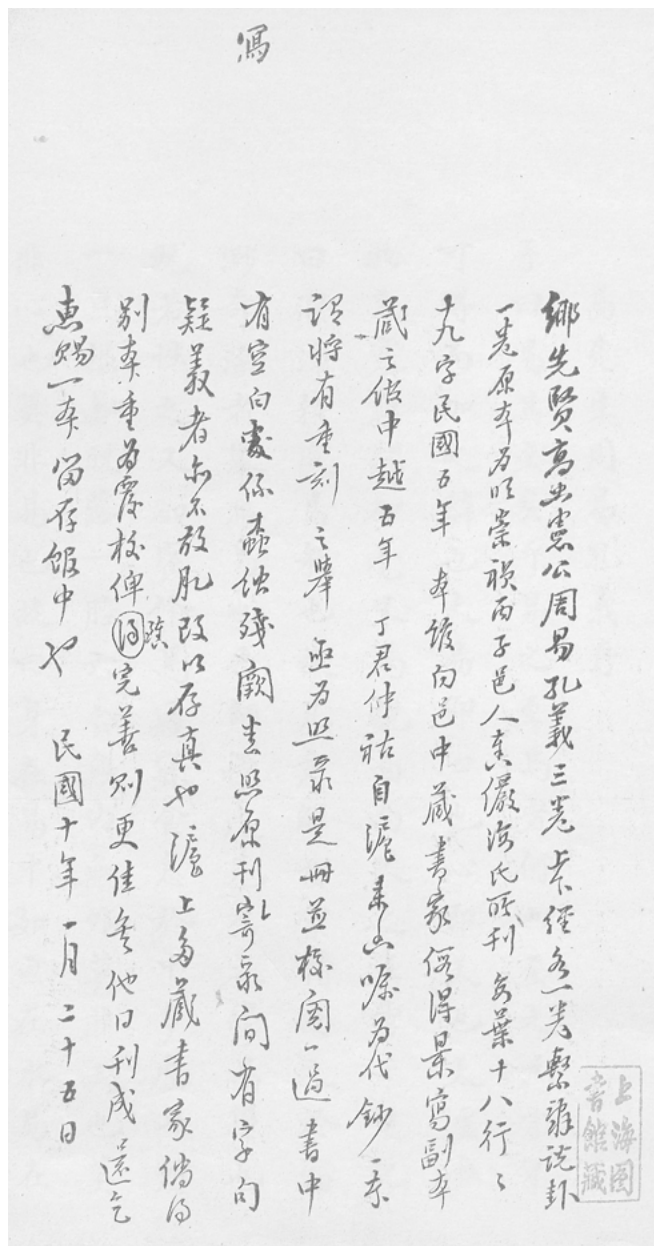 寫
鄉先賢高忠憲公周易孔義三卷上下經各一卷繫辭說卦
一卷原本為明崇禎丙子邑人秦儼海氏所刊每葉十八行行
十九字民國五年 本館向邑中藏書家假得景寫副本
藏之館中越五年 丁君仲祜自滬來函囑為代鈔一本
謂將有重刻之舉亟為照錄是冊並校閱一過書中
有空白處係蠹蝕殘闕悉照原刊寫錄間有字句
疑義者亦不敢肊改以存真也滬上多藏書家倘得
別本重為覆校俾得臻完善則更佳矣他日刊成還乞
惠賜一本留存館中也 民國十年一月二十五日
上海图
書館藏